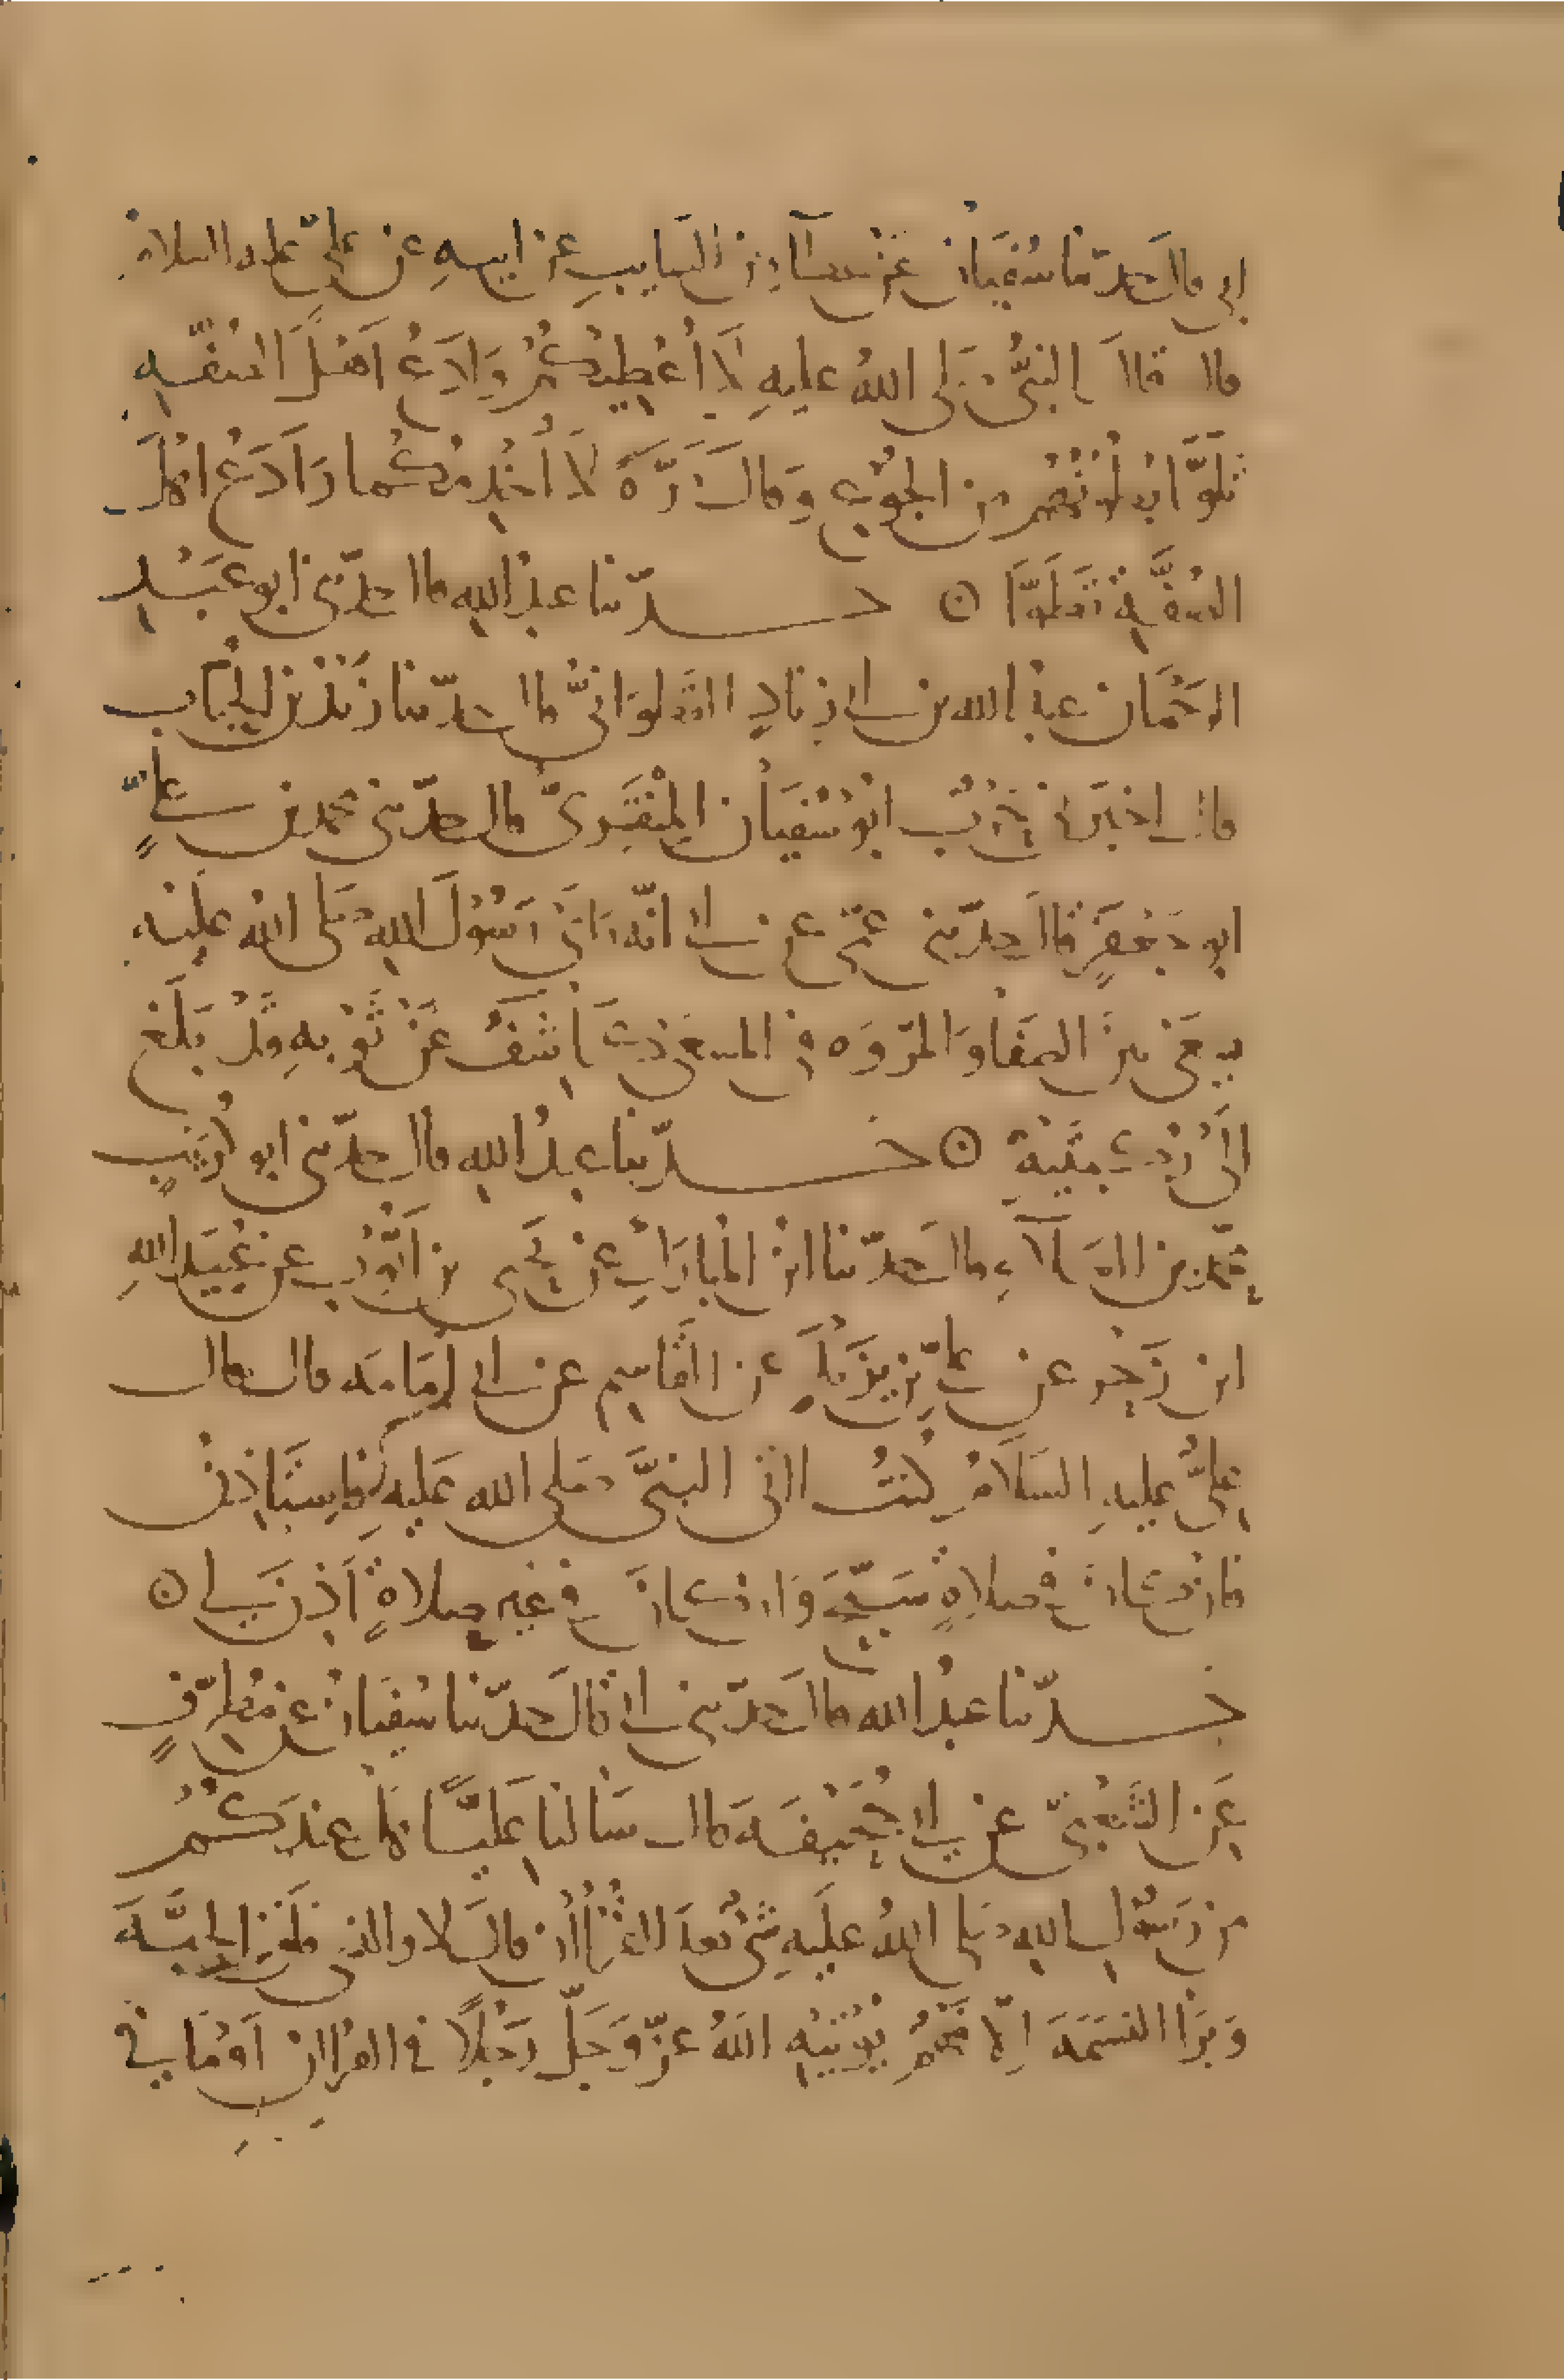 ابي قال حدّثنا سُفيَان عَنْ عطآءِ بن السَّايبِ عن ابيهِ عن عَليٍّ عليه السلام
قال قالَ النبيُّ صَلى اللهُ عليهِ لَا أُعْطِيكُمْ وَأدَعُ أهْلَ الصُفّهِ
تَلَوَّا بُطونُهُم من الجُوْعِ وَقالَ مَرَّةً لَا أُخْدِمُكُمَا وَأَدَعُ اهْلَ
الصُفَّةِ تَطَوَّا ن حدّثنا عبدُ اللهِ قال حدّثني ابو عَبْدِ
الرَحْمَان عبدُ الله بن ابي زيادٍ القَطَوَانيُّ قال حدّثنا زَيْدُ بن الحُبَاب
قال اخبَرَني حَرْبٌ ابُو سُفيَان المِنْقَرِىُّ قال حدّثني محمد بن عليٍّ
ابو جَعْفَرٍ قالَ حدّثني عَمّي عن ابي انّه رَاَى رَسُوْلَ اللهِ صَلى الله عَليْه
يسْعَى بينَ الصَفَا وَالمَرْوَه في المسْعَى كَاشفُ عَنْ ثَوْبهِ قَدْ بَلَغ
الَى رُكبَتيْهِ ن حدّثنا عبدُ اللهِ قال حدّثني ابو كُرَيْبٍ
محَمّد بن العَلآءِ قالَ حدّثنا ابنُ المُبارَكِ عَنْ يَحْيى بن أيُّوب عن عُبَيدِ اللهِ
ابن زَحْرٍ عن عليّ بن يَزيْدَ عن القَاسِمِ عن ابي أُمَامَه قال قال
عليُّ عليهِ السَلَامُ كُنتُ اٰتى النبيَّ صَلى الله عَليهِ فاستَاذنُ
فان كان في صلاةٍ سَبَّحَ وَان كانَ في غير صلاةٍ أذنَ لي ن
حدّثنا عبدُ الله قالَ حدّثني ابي قالَ حدّثنا سُفيَانُ عن مُطرّفٍ
عَن الشَعْبيّ عن ابي جُحَيْفَهَ قال سَالنا عَليًّا هَل عِندَكُمْ
من رَسُوْلِ اللهِ صَلى اللهُ عَليهِ شىْءٌ بَعدَ القُرْاٰن قالَ لا والذي فلَقَ الحَبَّةَ
وَبَرَا النسَمَةَ اِلّا فَهْمٌ يُؤتيْهِ اللهُ عَزّ وَجَلّ رَجُلًا في القراان أوْ مَا في